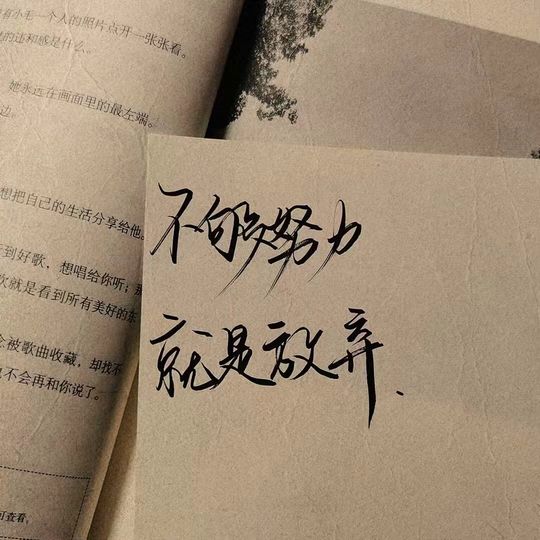 有小毛一个人的照片点开一张张看。
的违和感是什么。
她永远在画面里的最左端。
边。
想把自己的生活分享给他。
到好歌，想唱给你听；
欢就是看到所有美好的东
被歌曲收藏，却找不
不会再和你说了。
可查看，
不够努力
就是放弃.